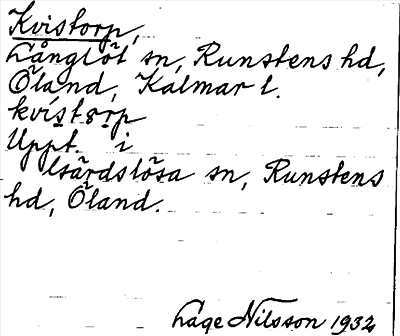 Kvistorp,
Långlöt sn, Runstens hd,
Öland, Kalmar l.
kvístorp
Uppt. i
Gärdslösa sn, Runstens
hd, Öland.
Lage Nilsson 1932